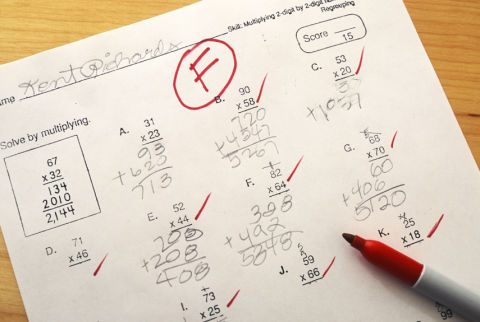 Skill: Multiplying 2-digit by 2-digit
Regrouping
Kent Richards
Score 15
F
Solve by multiplying.
67
x 32
134
2010
2,144
A. 31
x 23
93
+ 620
713
B. 90
x 58
720
+ 4547
5267
C. 53
x 20
+ 1057
D. 71
x 46
E. 52
x 44
208
+ 208
408
F. 82
x 64
308
+ 492
5648
G. 68
x 70
60
+ 406
5120
I. 73
x 25
J. 59
x 66
K. 25
x 18